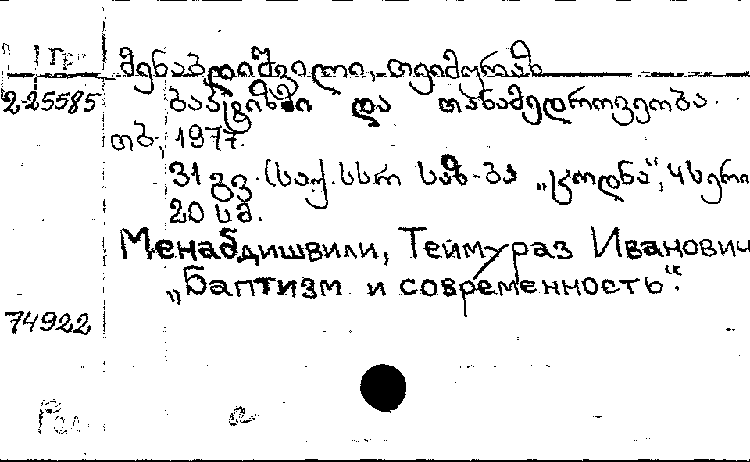 Гр
მენაბდიშვილი, თეიმურაზ
2-25585
ბაპტიზმი და თანამედროვეობა.
თბ, 1977.
31 გვ. (საქ. სსრ საზ-ბა „ცოდნა“, 4 სერია
20 სმ.
Менабдишвили, Теймураз Иванович
„Баптизм и современность“.
74922
Рел. а